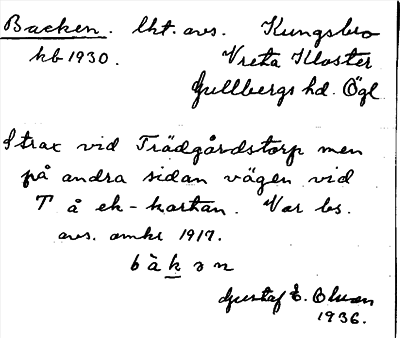 Backen. lht. avs. Kungsbro
hb 1930. Vreta Kloster
Gullbergs hd. Ögl
Strax vid Trädgårdstorp men
på andra sidan vägen vid
T å ek-kartan. Var bs.
avs. omkr 1917.
bàkən
Gustaf E. Olson
1936.